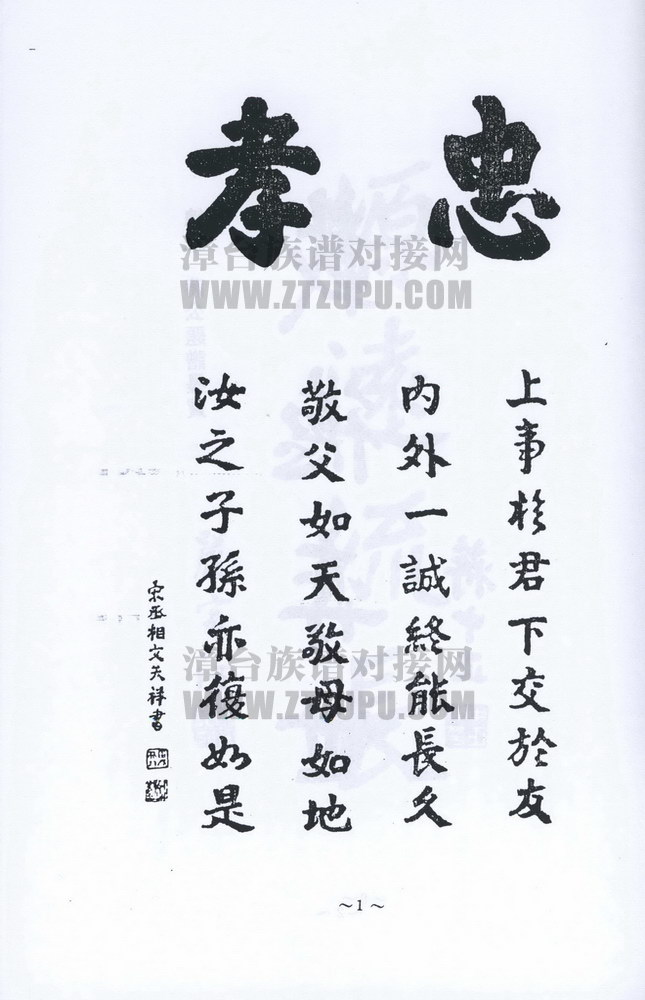 忠孝
漳台族谱对接网
WWW.ZTZUPU.COM
上事於君下交於友
內外一誠終能長久
敬父如天敬母如地
汝之子孫亦復如是
宋丞相文天祥書
漳台族谱对接网
WWW.ZTZUPU.COM
~1~